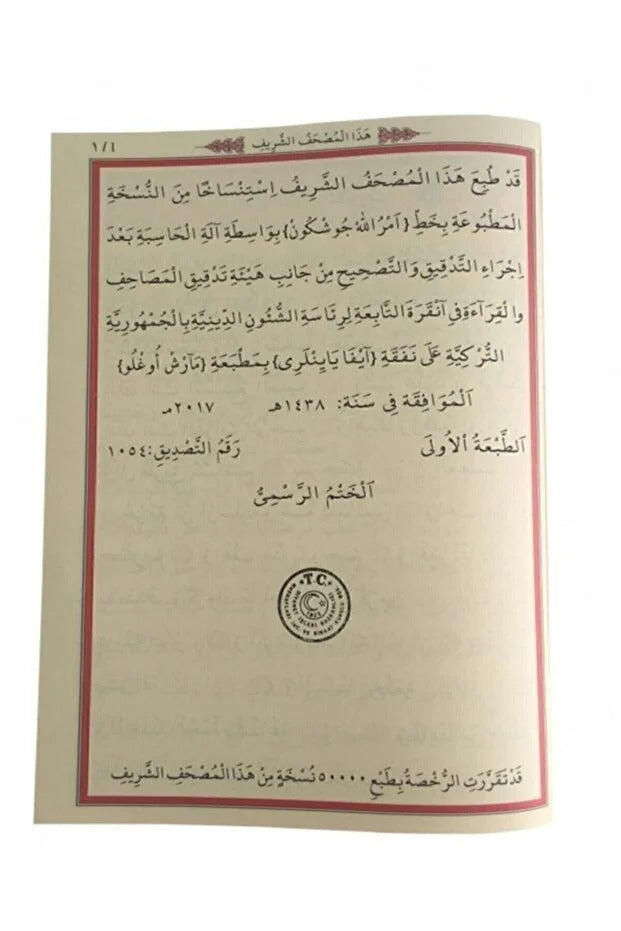 هَذَا الْمُصْحَفُ الشَّرِيفُ
١/٤
قَدْ طُبِعَ هَذَا الْمُصْحَفُ الشَّرِيفُ اِسْتِنْسَاخًا مِنَ النُّسْخَةِ
الْمَطْبُوعَةِ بِخَطِّ {اَمْرُ اللهْ جُوشْكُونْ} بِوَاسِطَةِ آلَةِ الْحَاسِبَةِ بَعْدَ
اِجْرَاءِ التَّدْقِيقِ وَالتَّصْحِيحِ مِنْ جَانِبِ هَيْئَةِ تَدْقِيقِ الْمَصَاحِفِ
وِالْقِرَآءَةِ فِي آنْقَرَةَ التَّابِعَةِ لِرِئَاسَةِ الشُّئُونِ الدِّينِيَّةِ بِالْجُمْهُورِيَّةِ
التُّرْكِيَّةِ عَلَى نَفَقَةِ {آيْفَا يَايِنْلَرِى} بِمَطْبَعَةِ {مَآرْشْ أُوغْلُو}
اَلْمُوَافِقَة فِى سَنَة: ١٤٣٨هـ ٢٠١٧مـ
اَلطَّبْعَةُ اْلاُولَى رَقَمُ التَّصْدِيقِ:١٠٥٤
اَلْخَتْمُ الرَّسْمِىُّ
T.C.
1923
قَدْ تَقَرَّرَتِ الرُّخْصَةُ بِطَبْعِ ٥٠٠٠٠ نُسْخَةٍ مِنْ هَذَا الْمُصْحَفِ الشَّرِيفِ